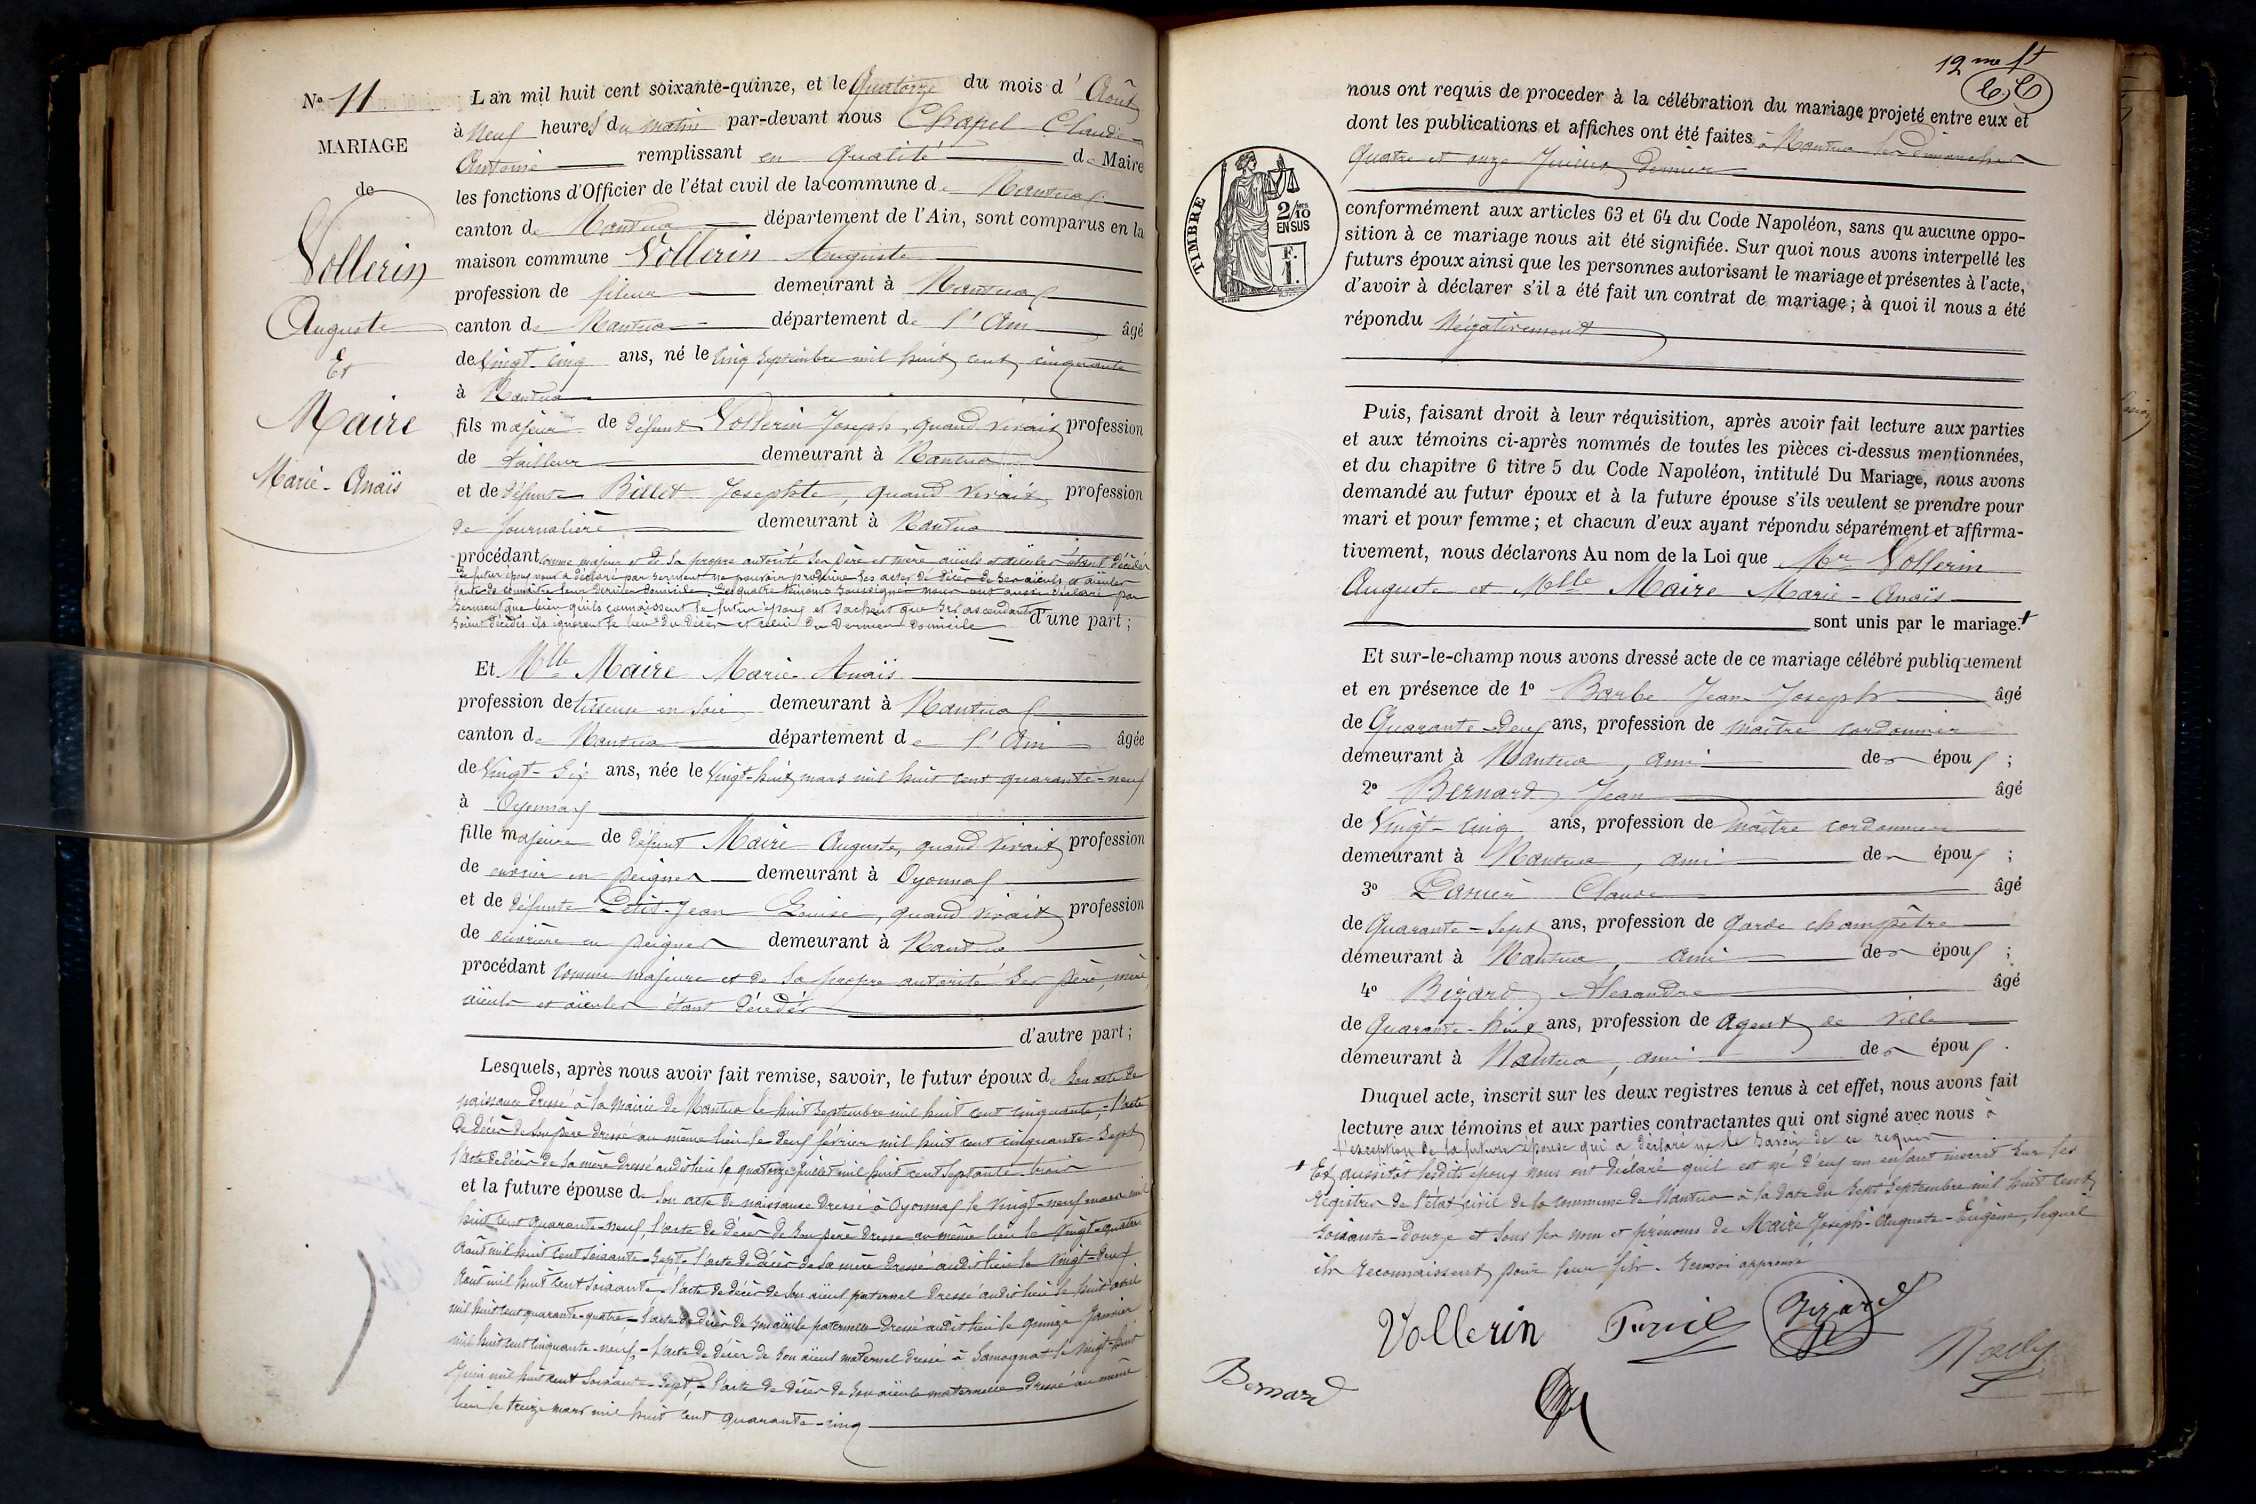 Nº 11
MARIAGE
de
Vollerin
Auguste
Et
Maire
Marie-Anaïs
L'an mil huit cent soixante-quinze, et le Quatorze du mois d'Août
à Neuf heures du matin par-devant nous Chapel Claude
Antoine remplissant en qualité de Maire
les fonctions d'Officier de l'état civil de la commune de Nantua
canton de Nantua département de l'Ain, sont comparus en la
maison commune Vollerin Auguste
profession de fileur demeurant à Nantua
canton de Nantua département de l'Ain âgé
de Vingt-cinq ans, né le cinq Septembre mil huit cent cinquante
à Nantua
fils majeur de défunt Vollerin Joseph, quand vivait profession
de tailleur demeurant à Nantua
et de défunte Billet Josephte, quand vivait profession
de Journalière demeurant à Nantua
procédant comme majeur et de sa propre autorité ses père et mère aïeuls et aïeules étant décédés
Le futur époux nous a déclaré par serment ne pouvoir produire les actes de décès de ses aïeuls et aïeules
faute de connaître leur dernier domicile. Les quatre témoins soussignés nous ont aussi déclaré par
serment que bien qu'ils connaissent le futur époux et sachent que ses ascendants
soient décédés ils ignorent le lieu du décès et celui du dernier domicile d'une part;
Et Mlle Maire Marie-Anaïs
profession de tisseuse en soie demeurant à Nantua
canton de Nantua département de l'Ain âgée
de Vingt-six ans, née le Vingt-huit mars mil huit cent quarante-neuf
à Oyonnax
fille majeure de défunt Maire Auguste, quand vivait profession
de ouvrier en peignes demeurant à Oyonnax
et de défunte Petit-Jean Louise, quand vivait profession
de ouvrière en peignes demeurant à Nantua
procédant comme majeure et de sa propre autorité ses père, mère
aïeuls et aïeules étant décédés
d'autre part;
Lesquels, après nous avoir fait remise, savoir, le futur époux de son acte de
naissance dressé à la Mairie de Nantua le huit Septembre mil huit cent cinquante, - l'acte
de décès de son père dressé au même lieu le deux février mil huit cent cinquante-sept
l'acte de décès de sa mère dressé audit lieu le quatorze Juillet mil huit cent septante-trois
et la future épouse de son acte de naissance dressé à Oyonnax le vingt-neuf mars mil
huit cent quarante-neuf, l'acte de décès de son père dressé au même lieu le vingt-quatre
Août mil huit cent soixante-sept, l'acte de décès de sa mère dressé audit lieu le vingt-deux
Août mil huit cent soixante, - l'acte de décès de son aïeul paternel dressé audit lieu le huit avril
mil huit cent quarante-quatre, - l'acte de décès de son aïeule paternelle dressé audit lieu le quinze Janvier
mil huit cent cinquante-neuf, - l'acte de décès de son aïeul maternel dressé à Samognat le vingt-huit
Juin mil huit cent soixante-sept, - l'acte de décès de son aïeule maternelle dressé au même
lieu le treize mars mil huit cent quarante-cinq
12me ft
nous ont requis de proceder à la célébration du mariage projeté entre eux et
dont les publications et affiches ont été faites à Nantua les dimanches
quatre et onze Juillet dernier
TIMBRE
2/10
EN SUS
F.
1.
conformément aux articles 63 et 64 du Code Napoléon, sans qu'aucune oppo-
sition à ce mariage nous ait été signifiée. Sur quoi nous avons interpellé les
futurs époux ainsi que les personnes autorisant le mariage et présentes à l'acte,
d'avoir à déclarer s'il a été fait un contrat de mariage; à quoi il nous a été
répondu Négativement
Puis, faisant droit à leur réquisition, après avoir fait lecture aux parties
et aux témoins ci-après nommés de toutes les pièces ci-dessus mentionnées,
et du chapitre 6 titre 5 du Code Napoléon, intitulé Du Mariage, nous avons
demandé au futur époux et à la future épouse s'ils veulent se prendre pour
mari et pour femme; et chacun d'eux ayant répondu séparément et affirma-
tivement, nous déclarons Au nom de la Loi que Mr Vollerin
Auguste et Mlle Maire Marie-Anaïs
sont unis par le mariage.
Et sur-le-champ nous avons dressé acte de ce mariage célébré publiquement
et en présence de 1º Barbe Jean-Joseph âgé
de Quarante-deux ans, profession de maître cordonnier
demeurant à Nantua, ami des époux;
2º Bernard Jean âgé
de Vingt-cinq ans, profession de maître cordonnier
demeurant à Nantua, ami des époux;
3º Claude âgé
de Quarante-sept ans, profession de garde champêtre
demeurant à Nantua, ami des époux;
4º Bizard Alexandre âgé
de Quarante-huit ans, profession de agent de ville
demeurant à Nantua, ami des époux.
Duquel acte, inscrit sur les deux registres tenus à cet effet, nous avons fait
lecture aux témoins et aux parties contractantes qui ont signé avec nous à
l'exception de la future épouse qui a déclaré ne le savoir de ce requise
Et aussitôt lesdits époux nous ont déclaré qu'il est né d'eux un enfant inscrit sur les
registres de l'état civil de la commune de Nantua à la date du sept Septembre mil huit cent
soixante-douze et sous les nom et prénoms de Maire Joseph-Auguste-Eugène, lequel
ils reconnaissent pour leur fils. Renvoi approuvé
Vollerin
Bizard
Bernard